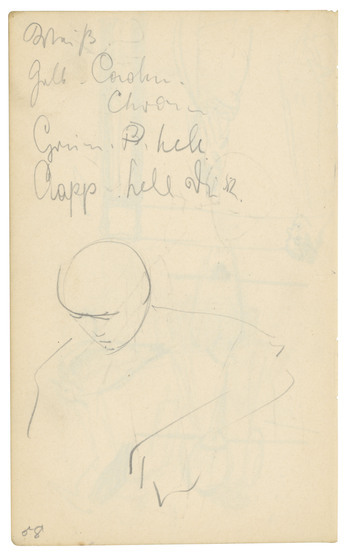 Weiß
Gelb - Cadm.
Chrom
Grün - P. hell
Crapp - hell
58